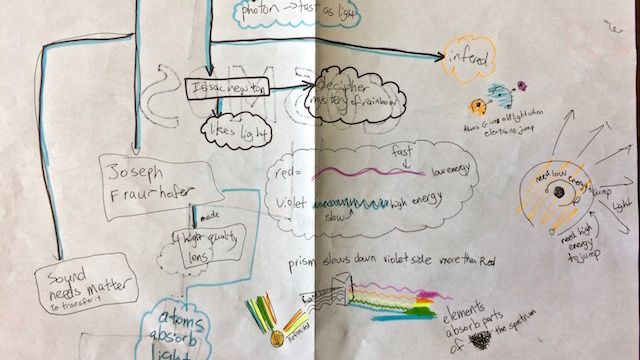 photon → fast as light
infered
Iesac newton
decipher
mystery of rainbow
likes light
Atoms Gives off light when
electrons jump
Joseph
Fraurhofer
red=
fast
low energy
violet
slow
high energy
need low energy
to jump
light
need high
energy
to jump
made
high quality
lens
Sound
needs matter
To transfer it
prism slows down violet side more than Red
atoms
absorb
light
Refracted
elements
absorb parts
of the spectrum